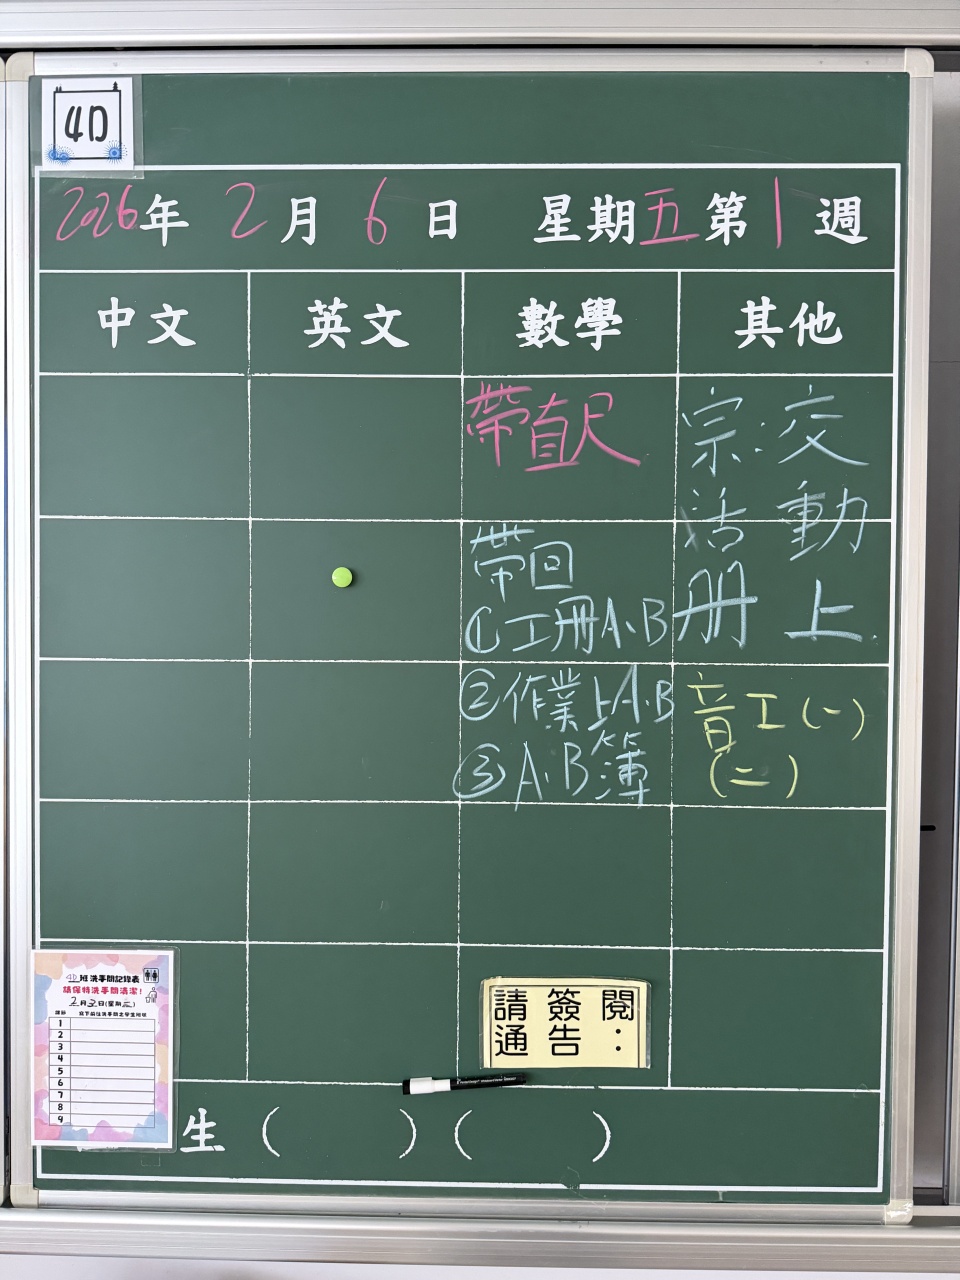 4D
2026年 2月 6日 星期五第1週
中文 英文 數學 其他
帶直尺
帶回
①工冊A、B
②作業上A、B
③A、B簿
宗:交
活動
冊上
音工(一)
(二)
請簽閱
通告:
4D班洗手間記錄表
請保持洗手間清潔!
1
2
3
4
5
6
7
8
9
生( )( )